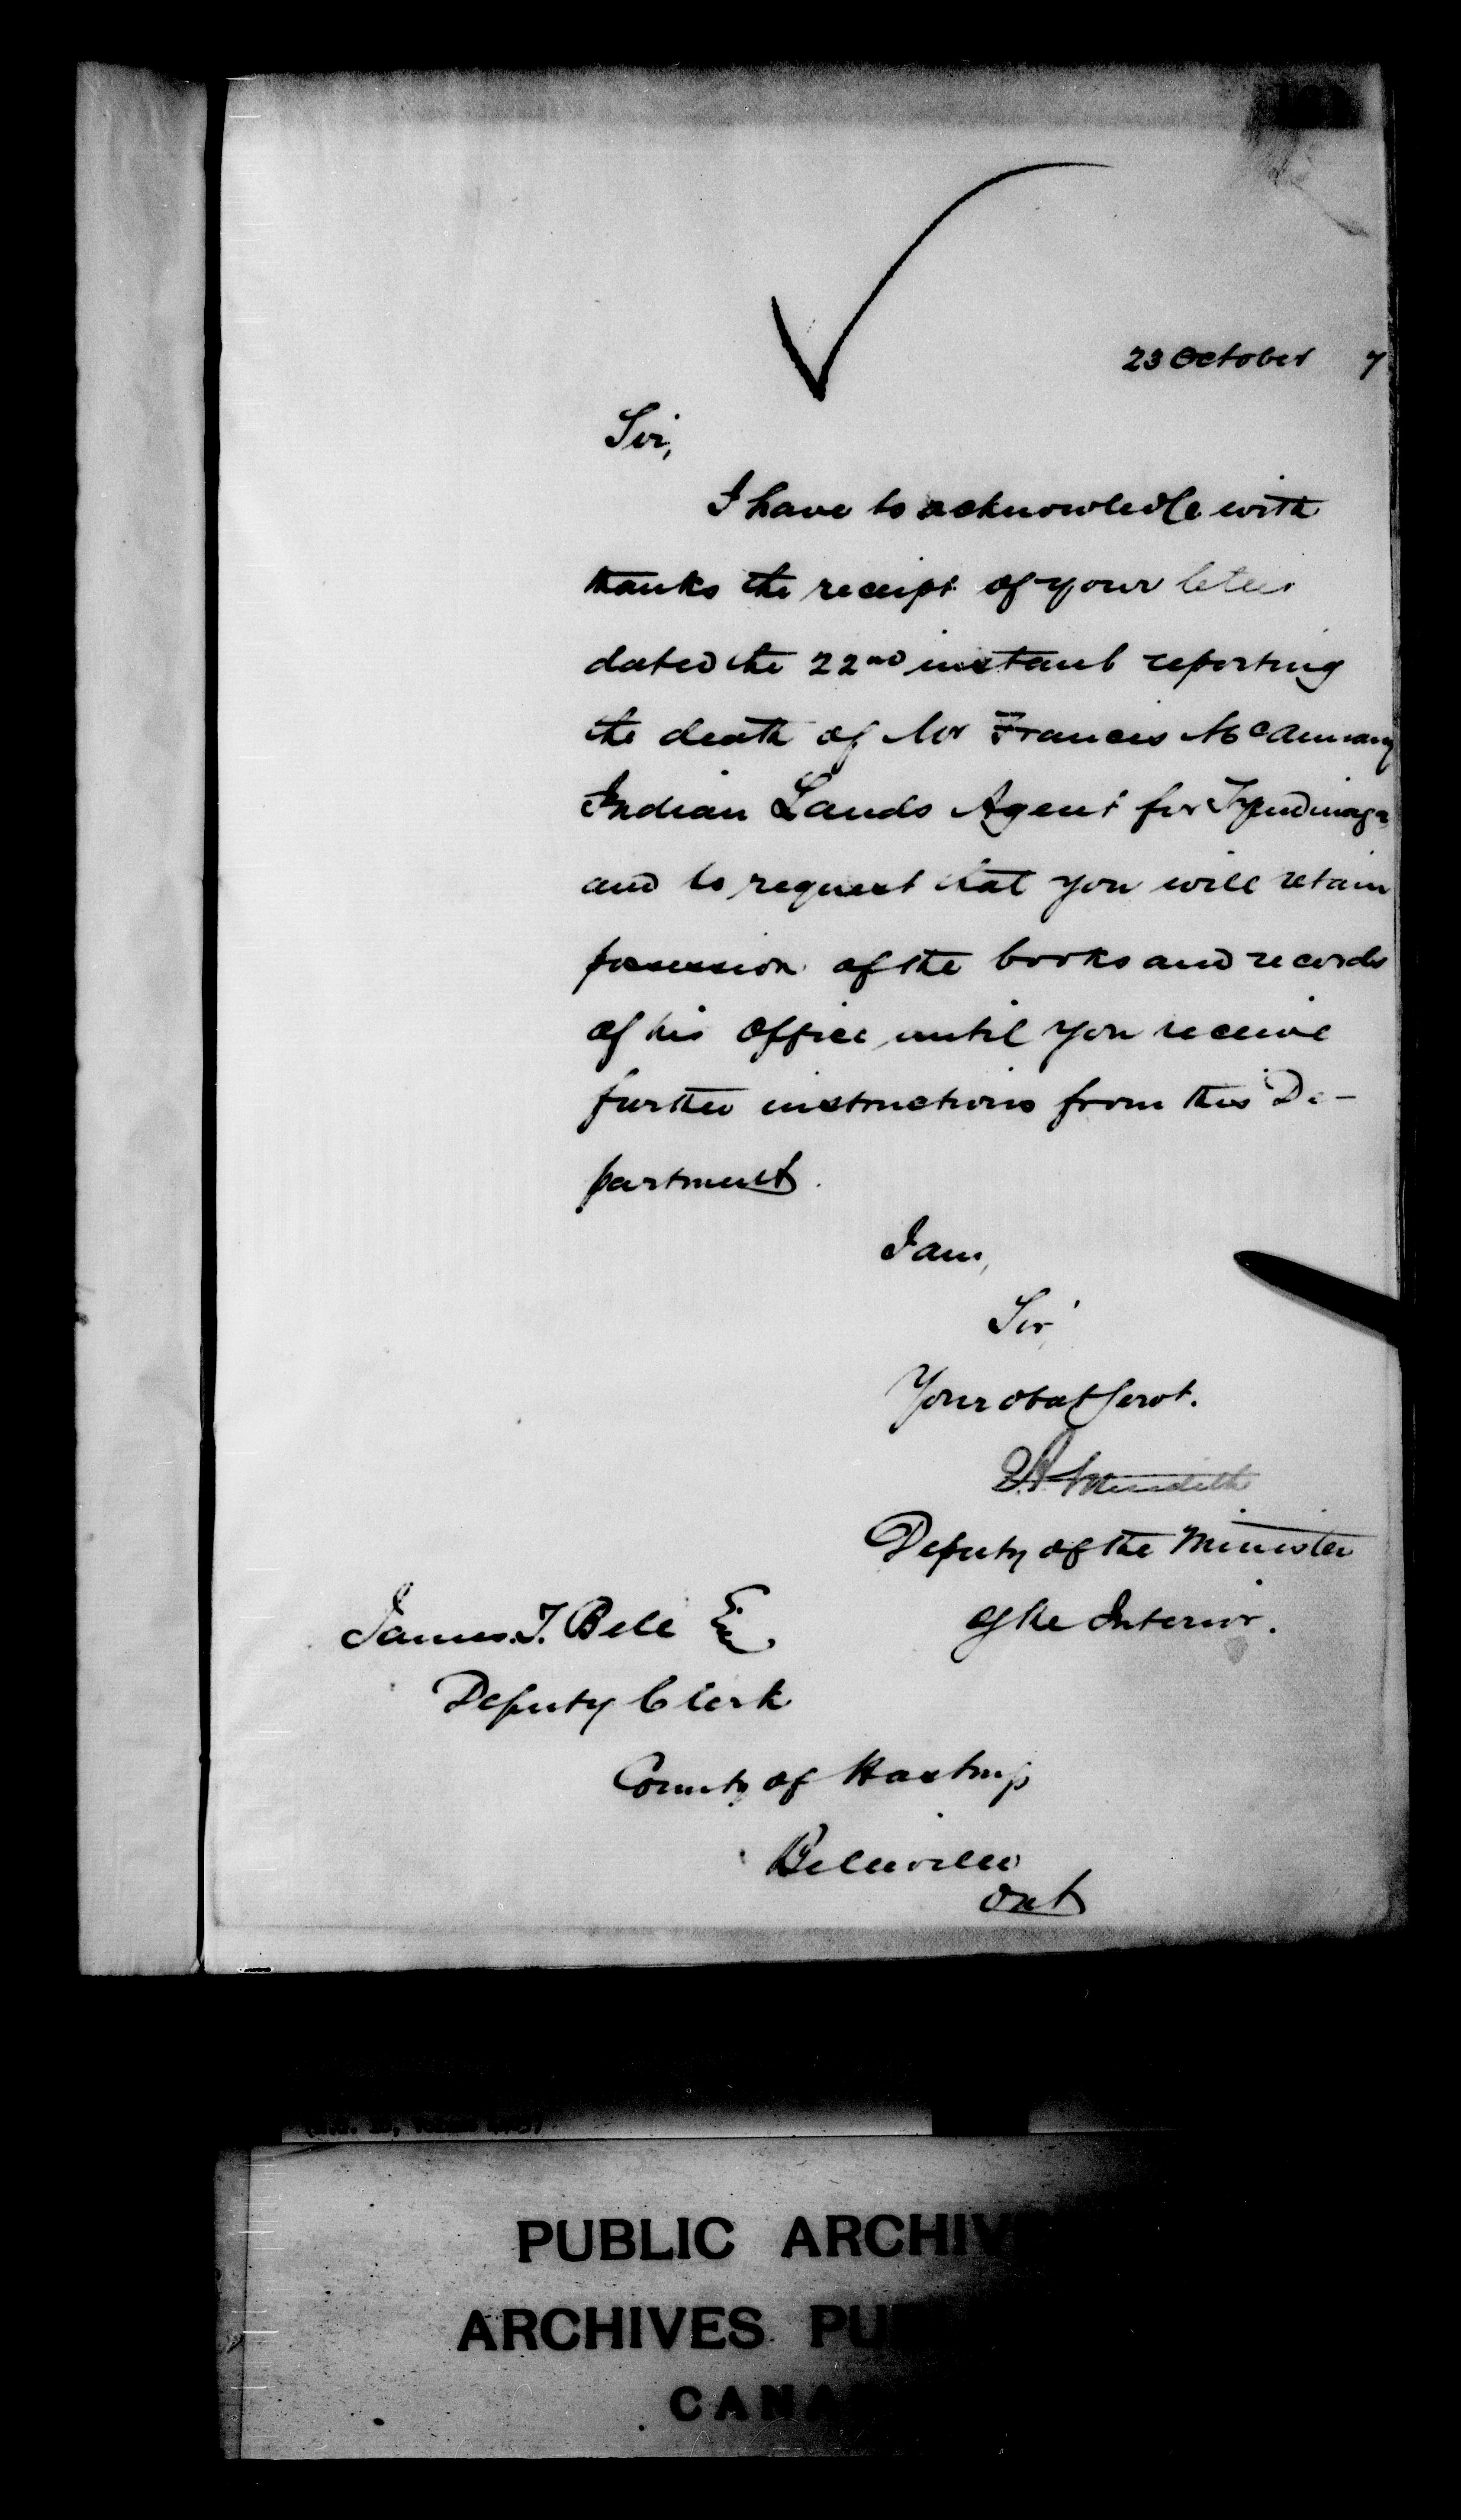 23 October 7
Sir,
I have to acknowledge with
thanks the receipt of your letter
dated the 22nd instant reporting
the death of Mr Francis McAnnany
Indian Lands Agent for Tyendinaga
and to request that you will retain
possession of the books and records
of his office until you receive
further instructions from this De-
partment.
I am,
Sir,
Your obdt Servt.
E A Meredith
Deputy of the Minister
of the Interior.
James. T. Bell Esq
Deputy Clerk
County of Hastings
Belleville
Ont
PUBLIC ARCHIV
ARCHIVES PU
CANA